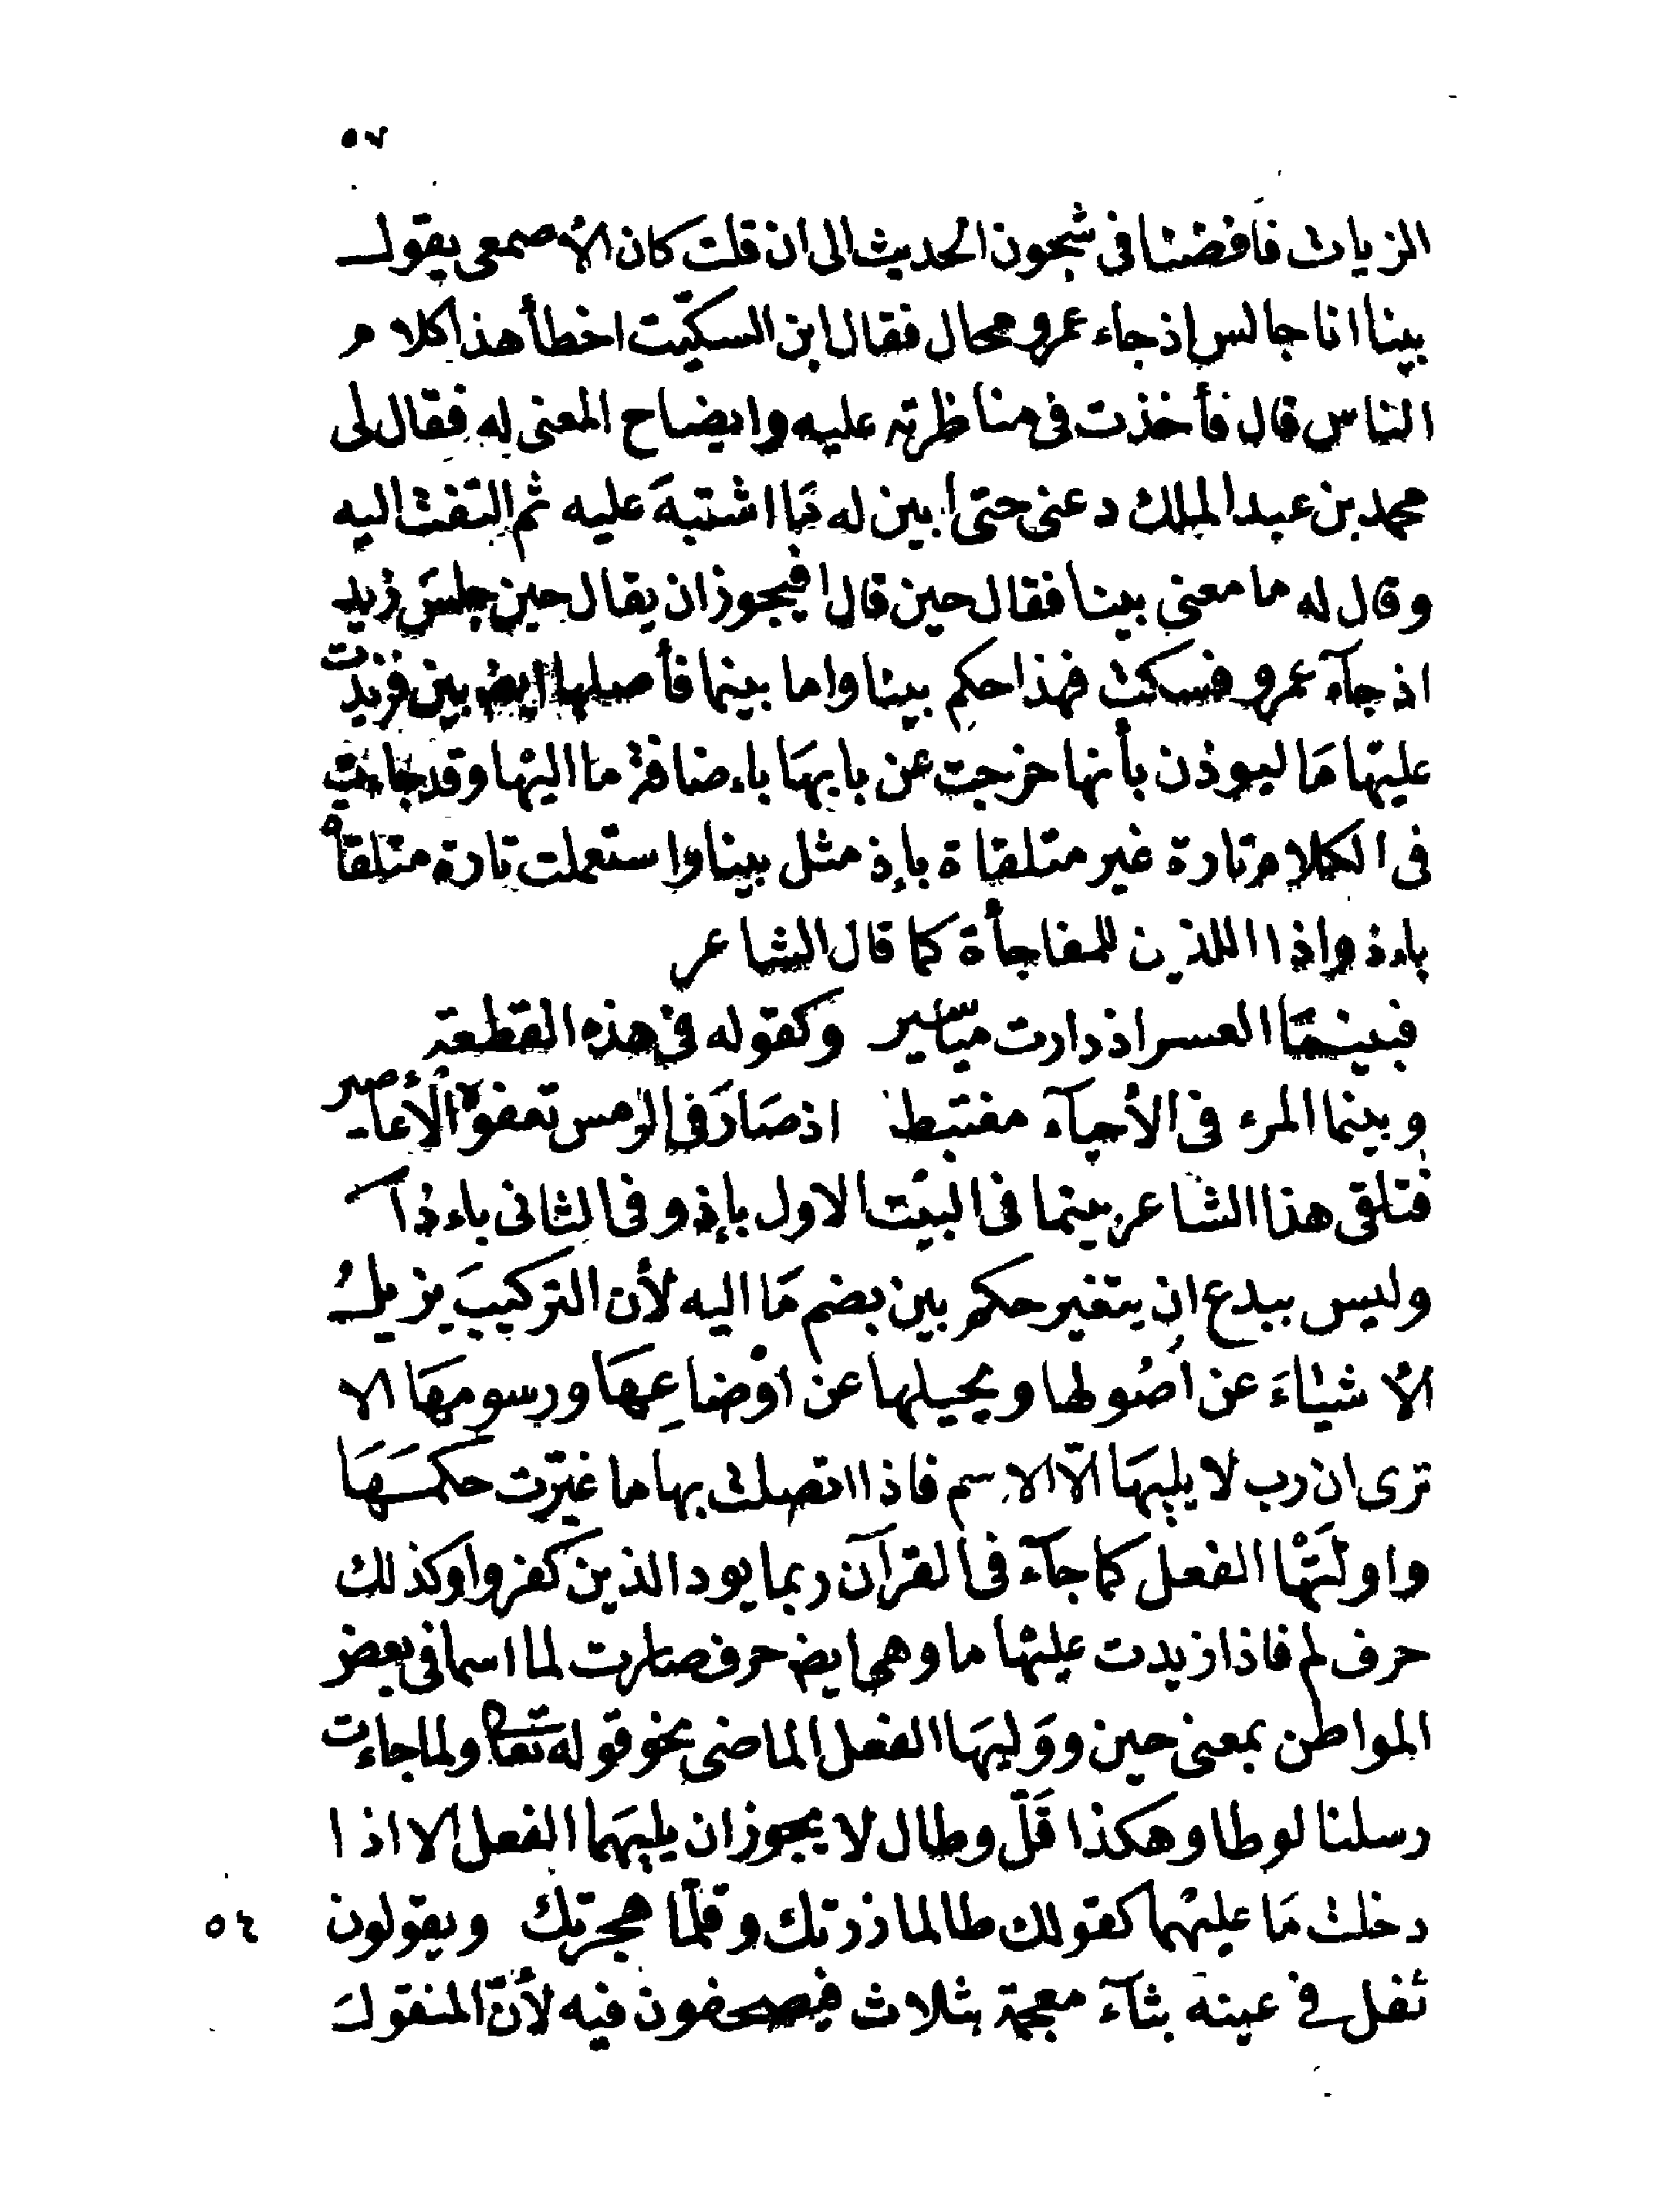 ٥٧
الزيات فأفضنا فى شجون الحديث الى ان قلت كان الأصمعى يقول
بينا انا جالس اذ جاء عمرو محال فقال ابن السكيّت اخطأ هذا كلام
الناس قال فأخذت فى مناظرته عليه وايضاح المعنى له فقال لى
محمد بن عبد الملك دعنى حتى ابين له مَا اشتبهَ عليه ثم التفت اليه
وقال له ما معنى بينا فقال حين قال افيجوز ان يقال حين جلسَ زيد
اذ جآء عمرو فسكت فهذا حكم بينا واما بينما فأصلها ايض بين فزيدت
عليها مَا ليوذن بأنها خرجت عن بابهَا باءضافة ما اليها وقد جاءت
فى الكلام تارة غير متلقاة بإذ مثل بينا واستعملت تارة متلقاة
باءذ واذا اللذين للمفاجأة كما قال الشاعر
فبينمَا العسر اذ دارت مياسير وكقوله فى هذه القطعة
وبينما المرء فى الأحيآء مغتبط اذ صَارَ فى الرمس تعفوه الأعاصير
فتلقى هذا الشاعر بينما فى البيت الاول بإذ وفى الثانى باءذا
وليس ببدع ان يتغير حكم بين بضم مَا اليه لأن التركيبَ يزيلُ
الأشيٰاءَ عن اصُولها ويحيلها عن اوْضاعِهَا ورسومهَا الا
ترى ان رب لا يليهَا الّا الاسم فاذا اتصلت بها ما غيّرت حكمَهَا
واولَتْها الفعل كما جآء فى القرآن ربما يود الذين كفروا وكذلك
حرف لم فاذا زيدت عليها ما وهى ايض حرف صارت لما اسما فى بعض
المواطن بمعنى حين ووَليهَا الفعل الماضى نحو قوله تعا ولما جاءت
رسلنا لوطا وهكذا قَلّ وطال لا يجوز ان يليهَما الفعل الا اذا
دخلت مَا عليهما كقولك طالما زرتك وقلّما هجرتك ويقولون ٥٤
ثفل فى عينه بثآء معجمة بثلاث فيصحفون فيه لأنّ المنقولَ